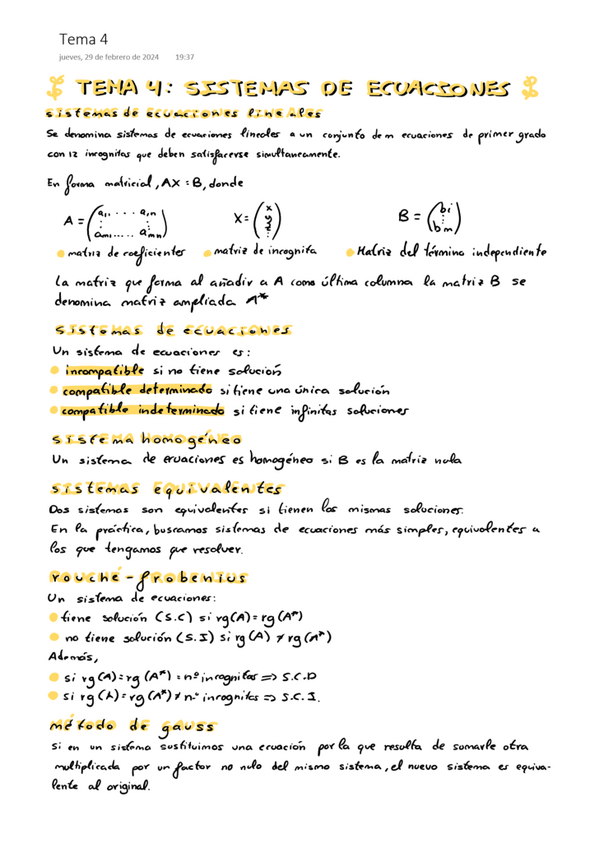 Tema 4
jueves, 29 de febrero de 2024 19:37
TEMA 4: SISTEMAS DE ECUACIONES
sistemas de ecuaciones lineales
Se denomina sistemas de ecuaciones lineales a un conjunto de m ecuaciones de primer grado
con 12 incognitas que deben satisfacerse simultaneamente.
En forma matricial, AX = B, donde
A = (a11 . . . a1n ⋮ am1 ..... amn) X = (x y z ⋮) B = (bi ⋮ bm)
matriz de coeficientes matriz de incognita Matriz del término independiente
La matriz que forma al añadir a A como última columna la matriz B se
denomina matriz ampliada A*
sistemas de ecuaciones
Un sistema de ecuaciones es:
incompatible si no tiene solución
compatible determinado si tiene una única solución
compatible indeterminado si tiene infinitas soluciones
sistema homogéneo
Un sistema de ecuaciones es homogéneo si B es la matriz nula
sistemas equivalentes
Dos sistemas son equivalentes si tienen las mismas soluciones.
En la práctica, buscamos sistemas de ecuaciones más simples, equivalentes a
los que tengamos que resolver.
rouché-frobenius
Un sistema de ecuaciones:
tiene solución (S.C) si rg(A) = rg(A*)
no tiene solución (S.I) si rg(A) ≠ rg(A*)
Además,
si rg(A) = rg(A*) = nº incognitas => S.C.D
si rg(A) = rg(A*) ≠ nº incognitas => S.C.I.
método de gauss
Si en un sistema sustituimos una ecuación por la que resulta de sumarle otra
multiplicada por un factor no nulo del mismo sistema, el nuevo sistema es equiva-
lente al original.